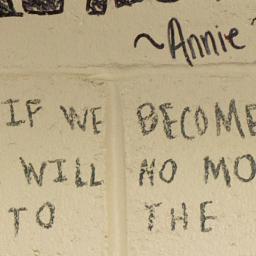 ~Annie
IF WE BECOME
WILL NO MO
TO THE